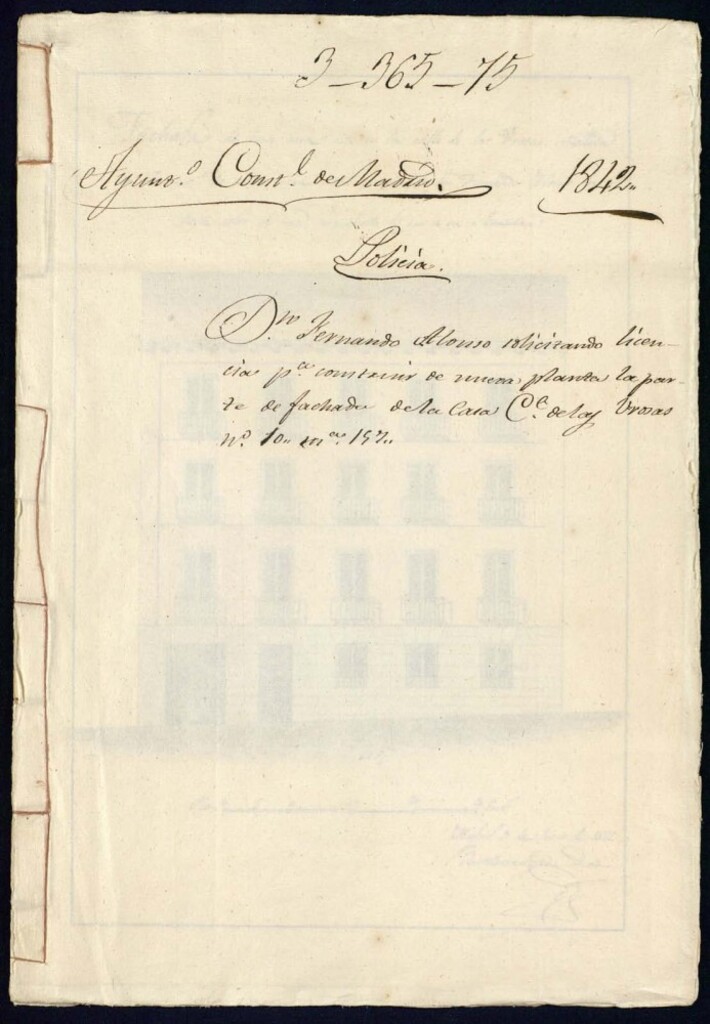 3-365-75
Ayunt.º Conn.l de Madrid. 1842.
Policia.
D.n Fernando Alonso solicitando licen-
cia p.ª construir de nueva planta la par-
te de fachada de la Casa C.e de las Urosas
nº. 10. m.ª 157.